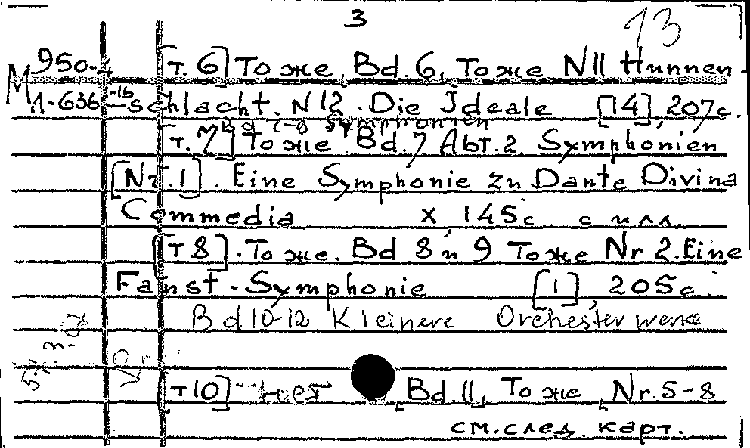 3
13
950-4 [т. 6] То же, Bd. 6, То же N11 Hunnen-
М 1-636 -16 schlacht. N 12. Die Ideale [14], 207с.
Symphonien
[т. 7] То же. Bd. 7 Abt. 2 Symphonien
[Nr. 1]. Eine Symphonie zu Dante Divina
Commedia x 145с с илл.
[т 8]. То же. Bd 8 и 9 То же Nr 2. Eine
Faust-Symphonie [1], 205с.
Bd 10-12 Kleinere Orchesterwerke
[т 10] нет Bd 11, То же, Nr. 5-8
см. след. карт.